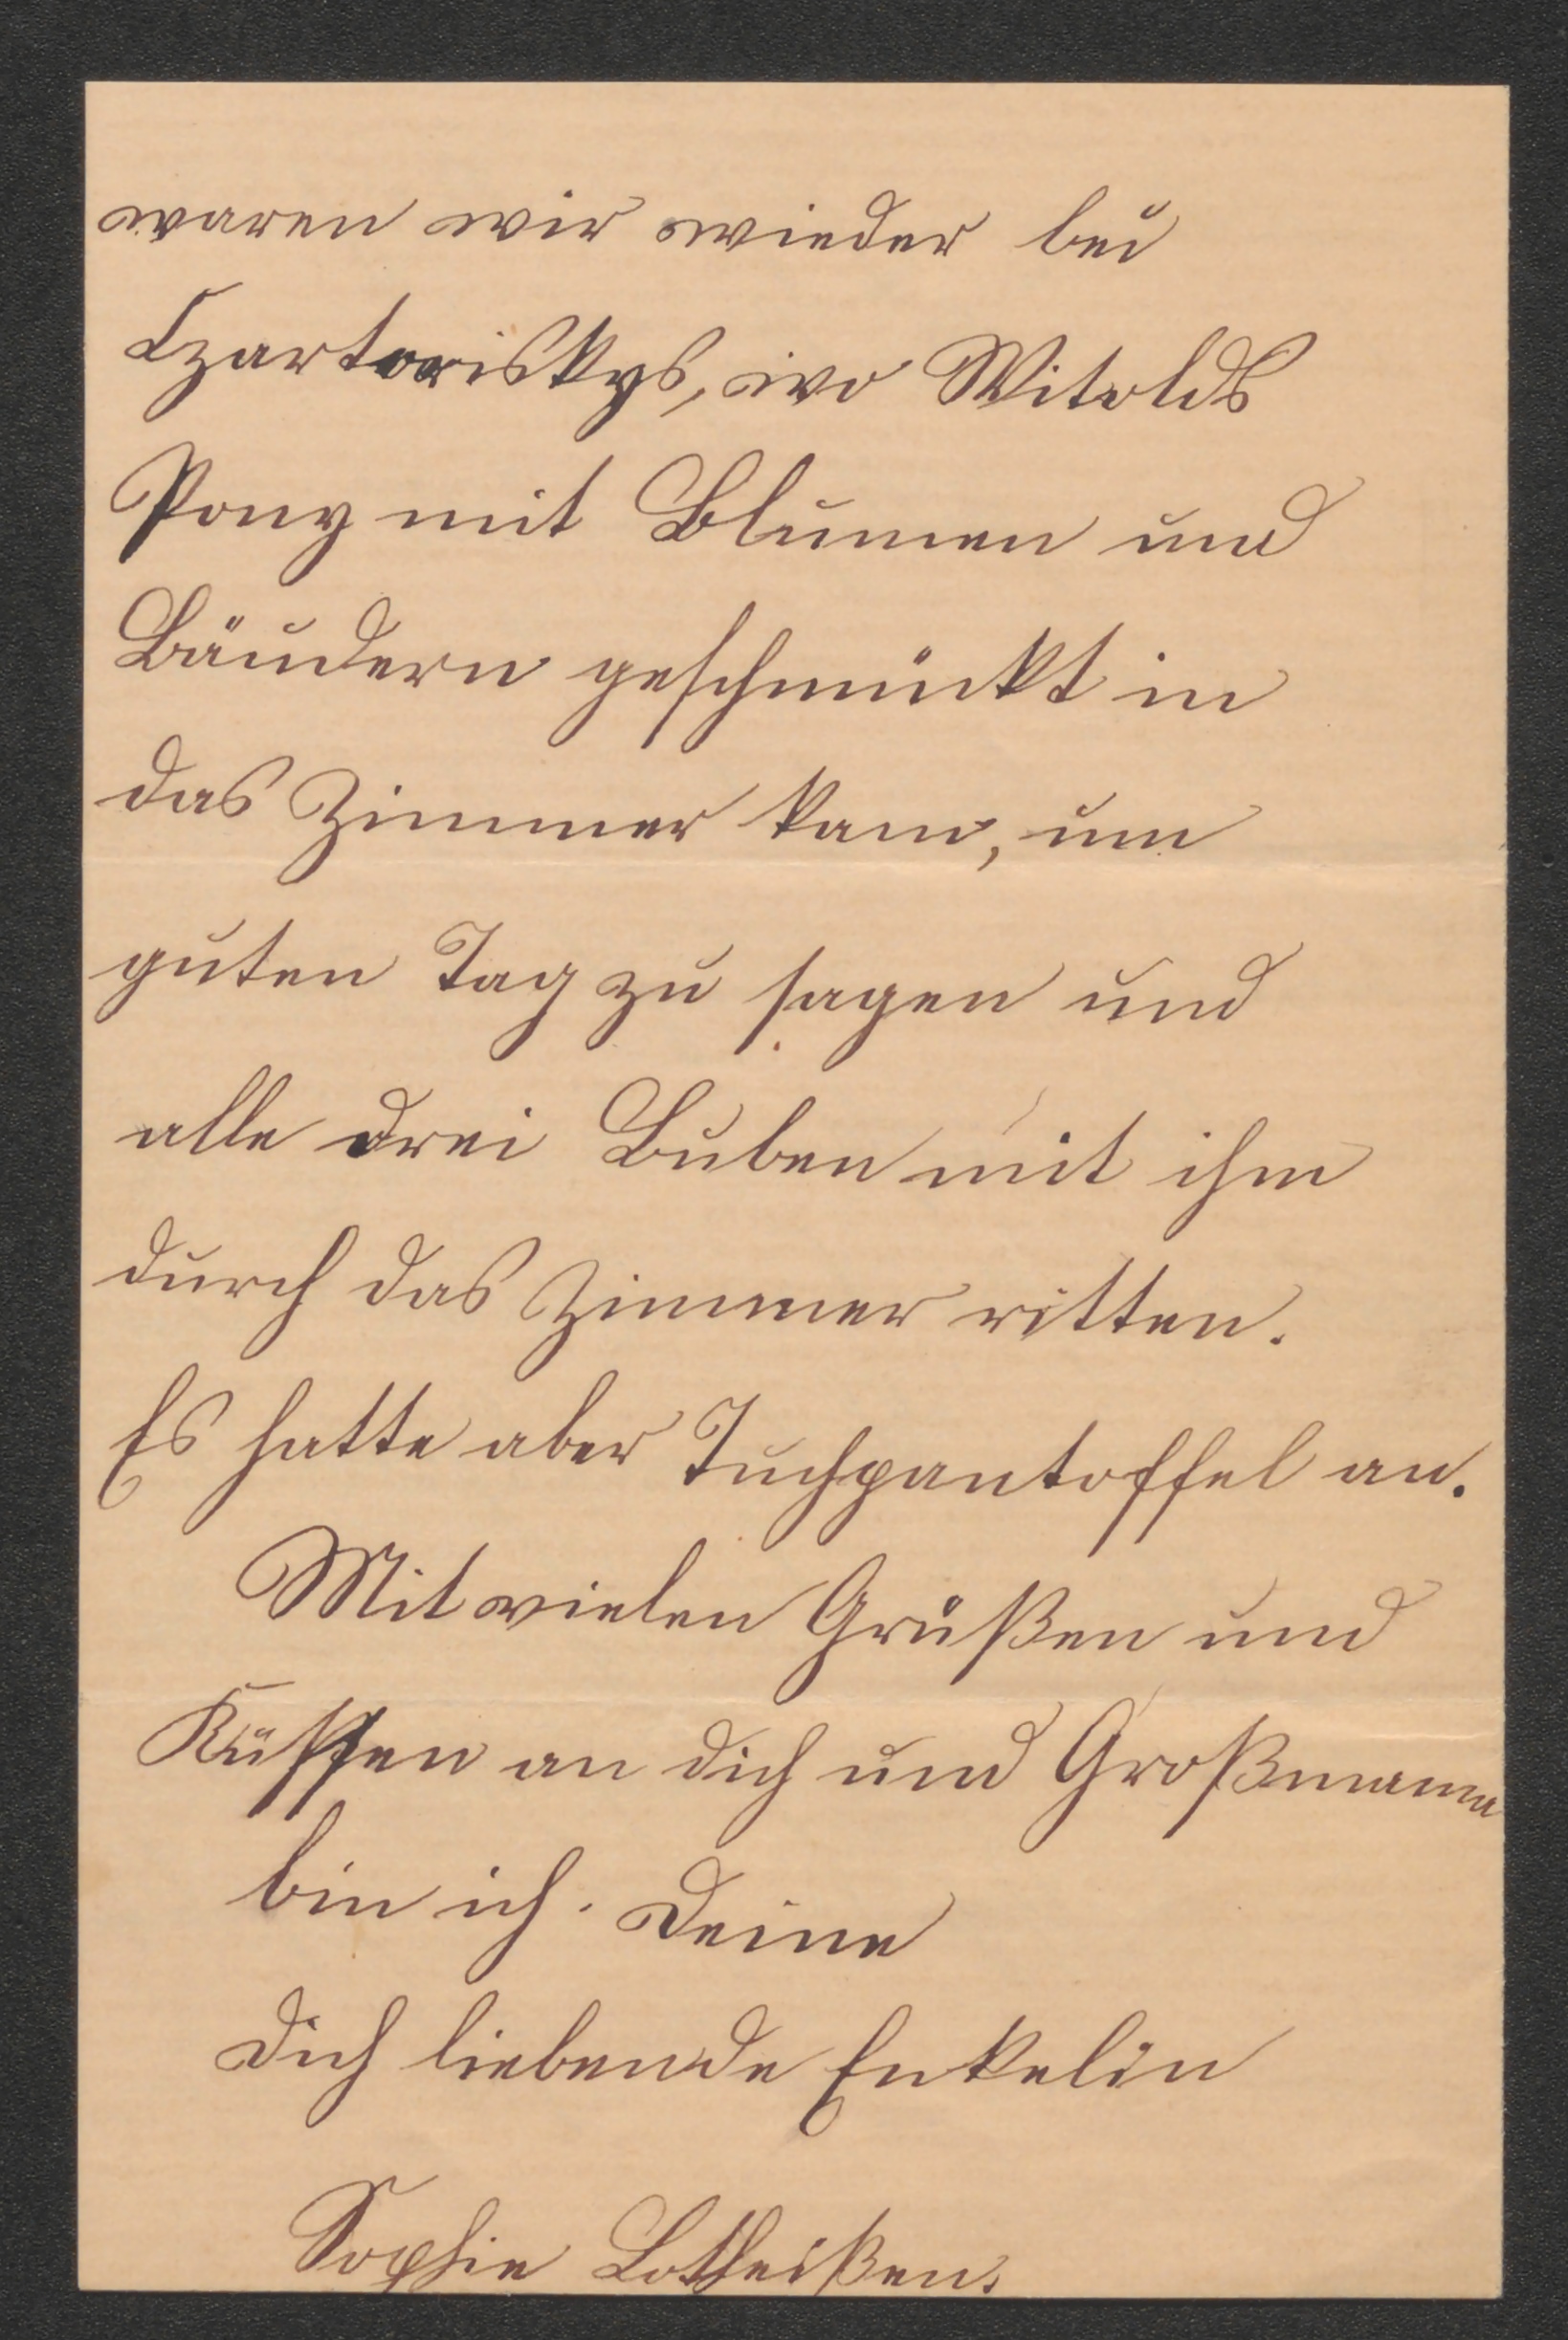 waren wir wieder bei
Czartoriskys, wo Witolds
Pony mit Blumen und
Bändern geschmückt in
das Zimmer kam, um
guten Tag zu sagen und
alle drei Buben mit ihm
durch das Zimmer ritten.
Es hatte aber Tuchpantoffel an.
Mit vielen Grüßen und
Küssen an dich und Großmama
bin ich. Deine
Dich liebende Enkelin
Sophie Lotheißen.